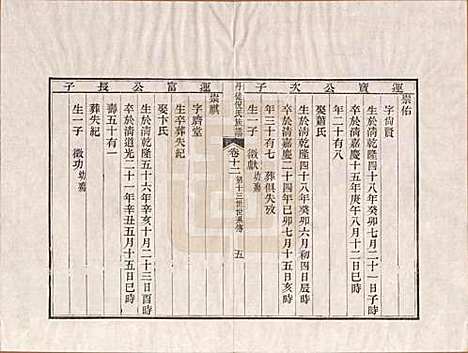 運寶公次子
崇佑
字尚賢
生於清乾隆四十八年癸卯二月二十一日子時
卒於清嘉慶十五年庚午八月十二日巳時
年二十有八
娶蕭氏
生於清乾隆四十八年癸卯六月初四日辰時
卒於清嘉慶二十四年己卯七月十五日亥時
年三十有七 葬俱失攷
生一子 徵獻 幼殤
丹徒倪氏族譜 卷十二 第十三世世系傳 五
運富公長子
崇麒
字濟堂
生卒葬失紀
娶卞氏
生於清乾隆五十六年辛亥十月二十三日酉時
卒於清道光二十一年辛丑五月十五日巳時
壽五十有一
葬失紀
生一子 徵功 幼殤